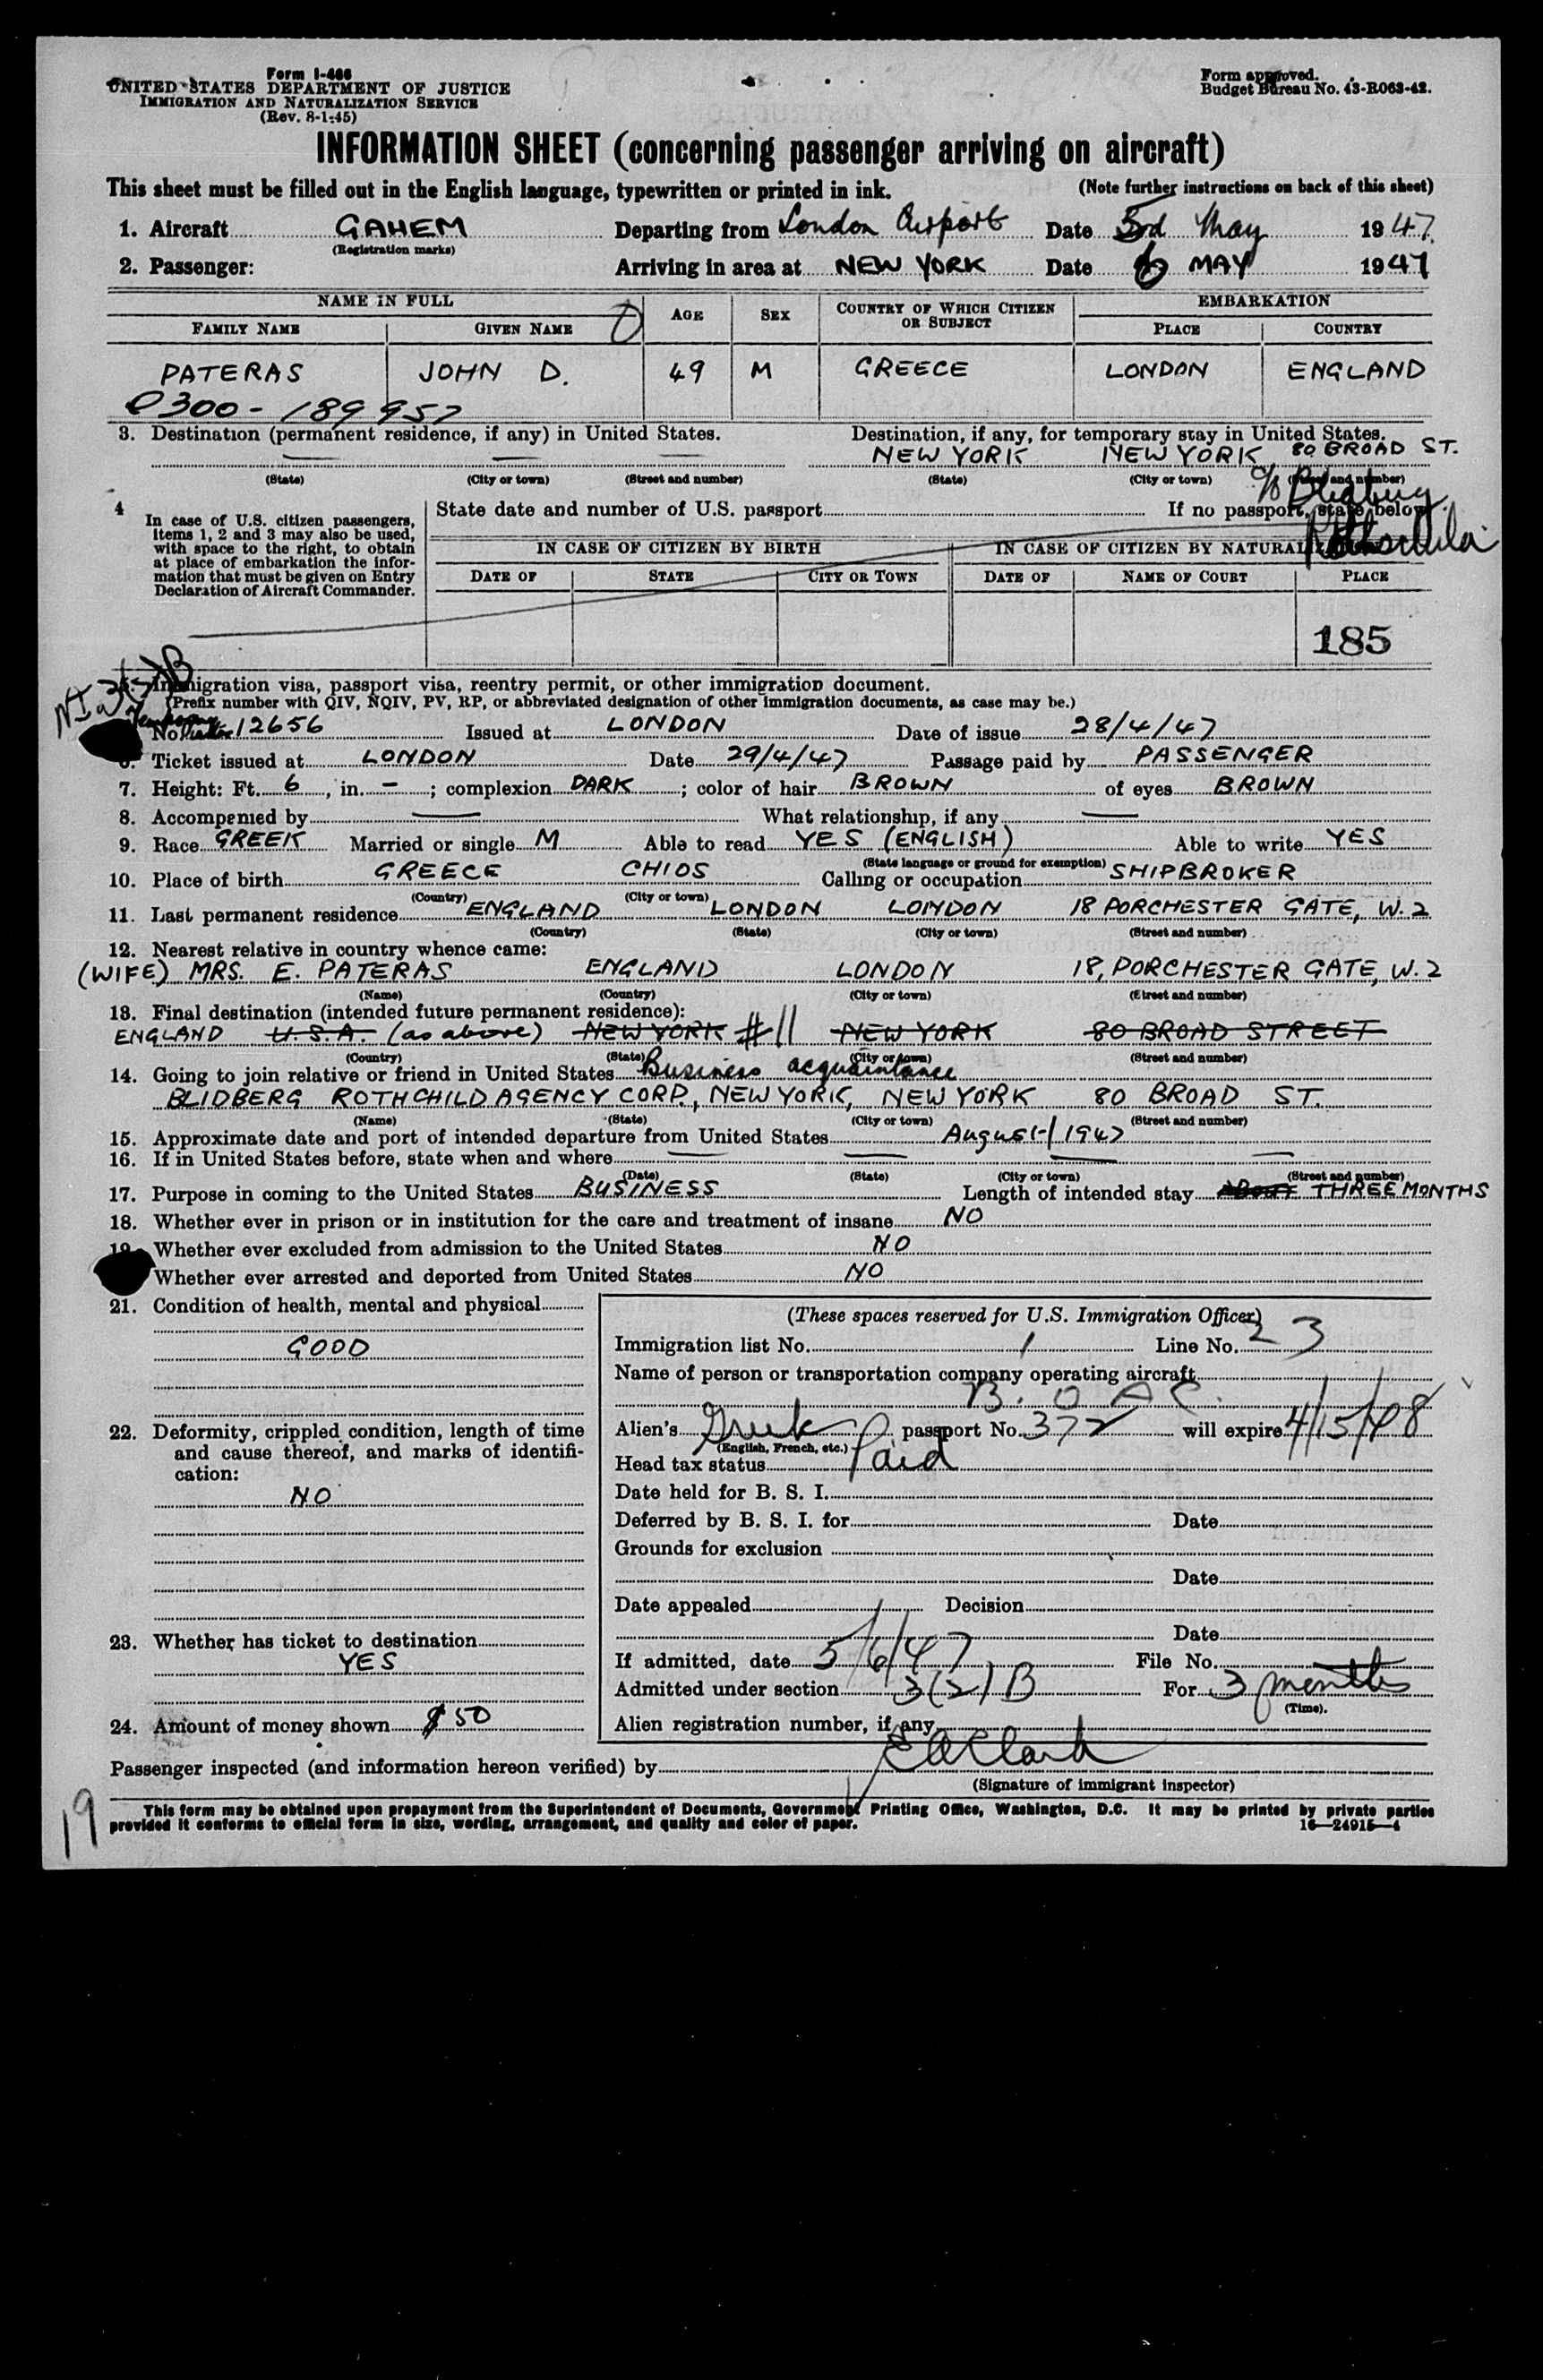 Form I-466
UNITED STATES DEPARTMENT OF JUSTICE
IMMIGRATION AND NATURALIZATION SERVICE
(Rev. 8-1-45)
Form approved.
Budget Bureau No. 43-R063-42.
INFORMATION SHEET (concerning passenger arriving on aircraft)
This sheet must be filled out in the English language, typewritten or printed in ink. (Note further instructions on back of this sheet)
1. Aircraft GAHEM Departing from London Airport Date 3rd May 1947.
(Registration marks)
2. Passenger: Arriving in area at NEW YORK Date 6 MAY 1947
NAME IN FULL AGE SEX COUNTRY OF WHICH CITIZEN OR SUBJECT EMBARKATION
FAMILY NAME GIVEN NAME PLACE COUNTRY
PATERAS JOHN D. 49 M GREECE LONDON ENGLAND
0300-189957
3. Destination (permanent residence, if any) in United States. Destination, if any, for temporary stay in United States.
NEW YORK NEW YORK 80 BROAD ST.
(State) (City or town) (Street and number) (State) (City or town) (Street and number)
c/o Blidberg
Rothschild
4 In case of U.S. citizen passengers, items 1, 2 and 3 may also be used, with space to the right, to obtain at place of embarkation the information that must be given on Entry Declaration of Aircraft Commander.
State date and number of U.S. passport If no passport, state below.
IN CASE OF CITIZEN BY BIRTH IN CASE OF CITIZEN BY NATURALIZATION
DATE OF STATE CITY OR TOWN DATE OF NAME OF COURT PLACE
185
3(2)B
5. Immigration visa, passport visa, reentry permit, or other immigration document.
(Prefix number with QIV, NQIV, PV, RP, or abbreviated designation of other immigration documents, as case may be.)
No. 12656 Issued at LONDON Date of issue 28/4/47
6. Ticket issued at LONDON Date 29/4/47 Passage paid by PASSENGER
7. Height: Ft. 6, in. -; complexion DARK; color of hair BROWN of eyes BROWN
8. Accompenied by — What relationship, if any —
9. Race GREEK Married or single M Able to read YES (ENGLISH) Able to write YES
(State language or ground for exemption)
10. Place of birth GREECE CHIOS Calling or occupation SHIPBROKER
(Country) (City or town)
11. Last permanent residence ENGLAND LONDON LONDON 18 PORCHESTER GATE, W.2
(Country) (State) (City or town) (Street and number)
12. Nearest relative in country whence came:
(WIFE) MRS. E. PATERAS ENGLAND LONDON 18, PORCHESTER GATE, W.2
(Name) (Country) (City or town) (Street and number)
13. Final destination (intended future permanent residence):
ENGLAND U.S.A. (as above) NEW YORK #11 NEW YORK 80 BROAD STREET
(Country) (State) (City or town) (Street and number)
14. Going to join relative or friend in United States Business acquaintance
BLIDBERG ROTHCHILD AGENCY CORP., NEW YORK, NEW YORK 80 BROAD ST.
(Name) (State) (City or town) (Street and number)
15. Approximate date and port of intended departure from United States August 1947
16. If in United States before, state when and where
(Date) (State) (City or town) (Street and number)
17. Purpose in coming to the United States BUSINESS Length of intended stay ABOUT THREE MONTHS
18. Whether ever in prison or in institution for the care and treatment of insane NO
19. Whether ever excluded from admission to the United States NO
Whether ever arrested and deported from United States NO
21. Condition of health, mental and physical
GOOD
22. Deformity, crippled condition, length of time and cause thereof, and marks of identification:
NO
23. Whether has ticket to destination
YES
24. Amount of money shown $50
(These spaces reserved for U.S. Immigration Officer)
Immigration list No. 1 Line No. 23
Name of person or transportation company operating aircraft
B. O A C.
Alien's Greek passport No. 372 will expire 4/15/48
(English, French, etc.)
Head tax status Paid
Date held for B. S. I.
Deferred by B. S. I. for Date
Grounds for exclusion
Date
Date appealed Decision
Date
If admitted, date 5/6/47 File No.
Admitted under section 3(2)B For 3 months
(Time).
Alien registration number, if any
Passenger inspected (and information hereon verified) by E A Clark
(Signature of immigrant inspector)
19
This form may be obtained upon prepayment from the Superintendent of Documents, Government Printing Office, Washington, D.C. It may be printed by private parties
provided it conforms to official form in size, wording, arrangement, and quality and color of paper. 16—24915—4